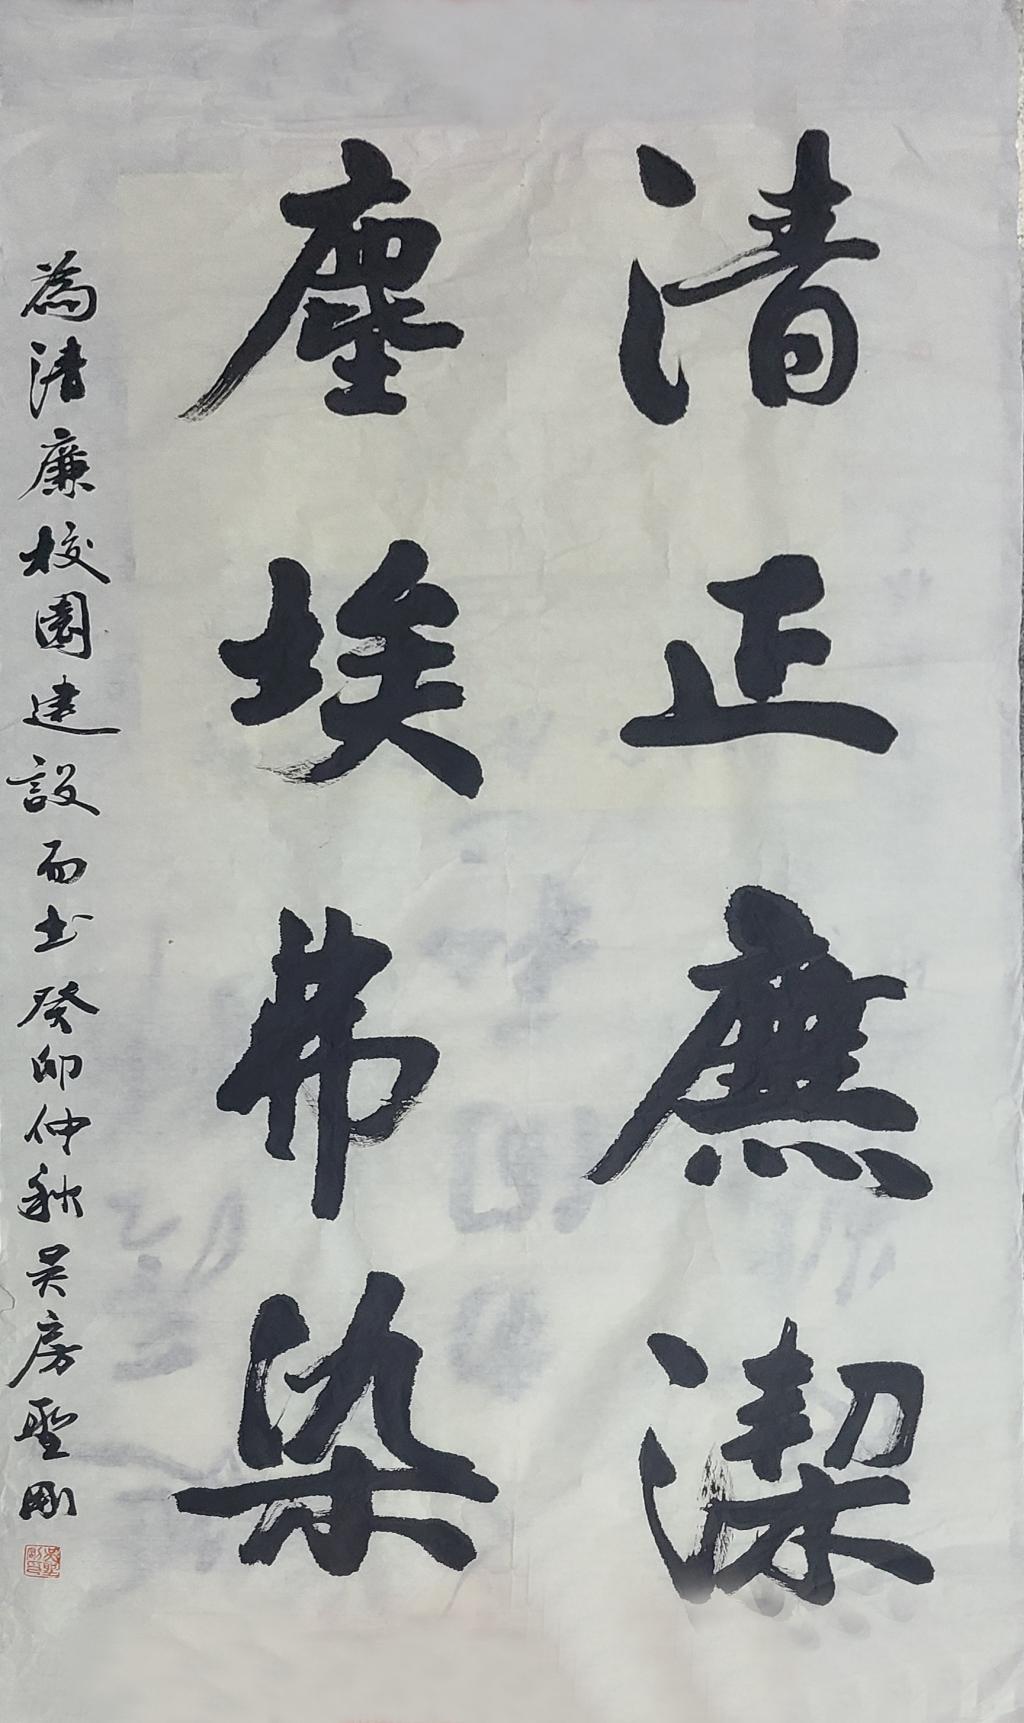 清正廉潔
塵埃弗染
為清廉校園建設而书癸卯仲秋吴房聖剛